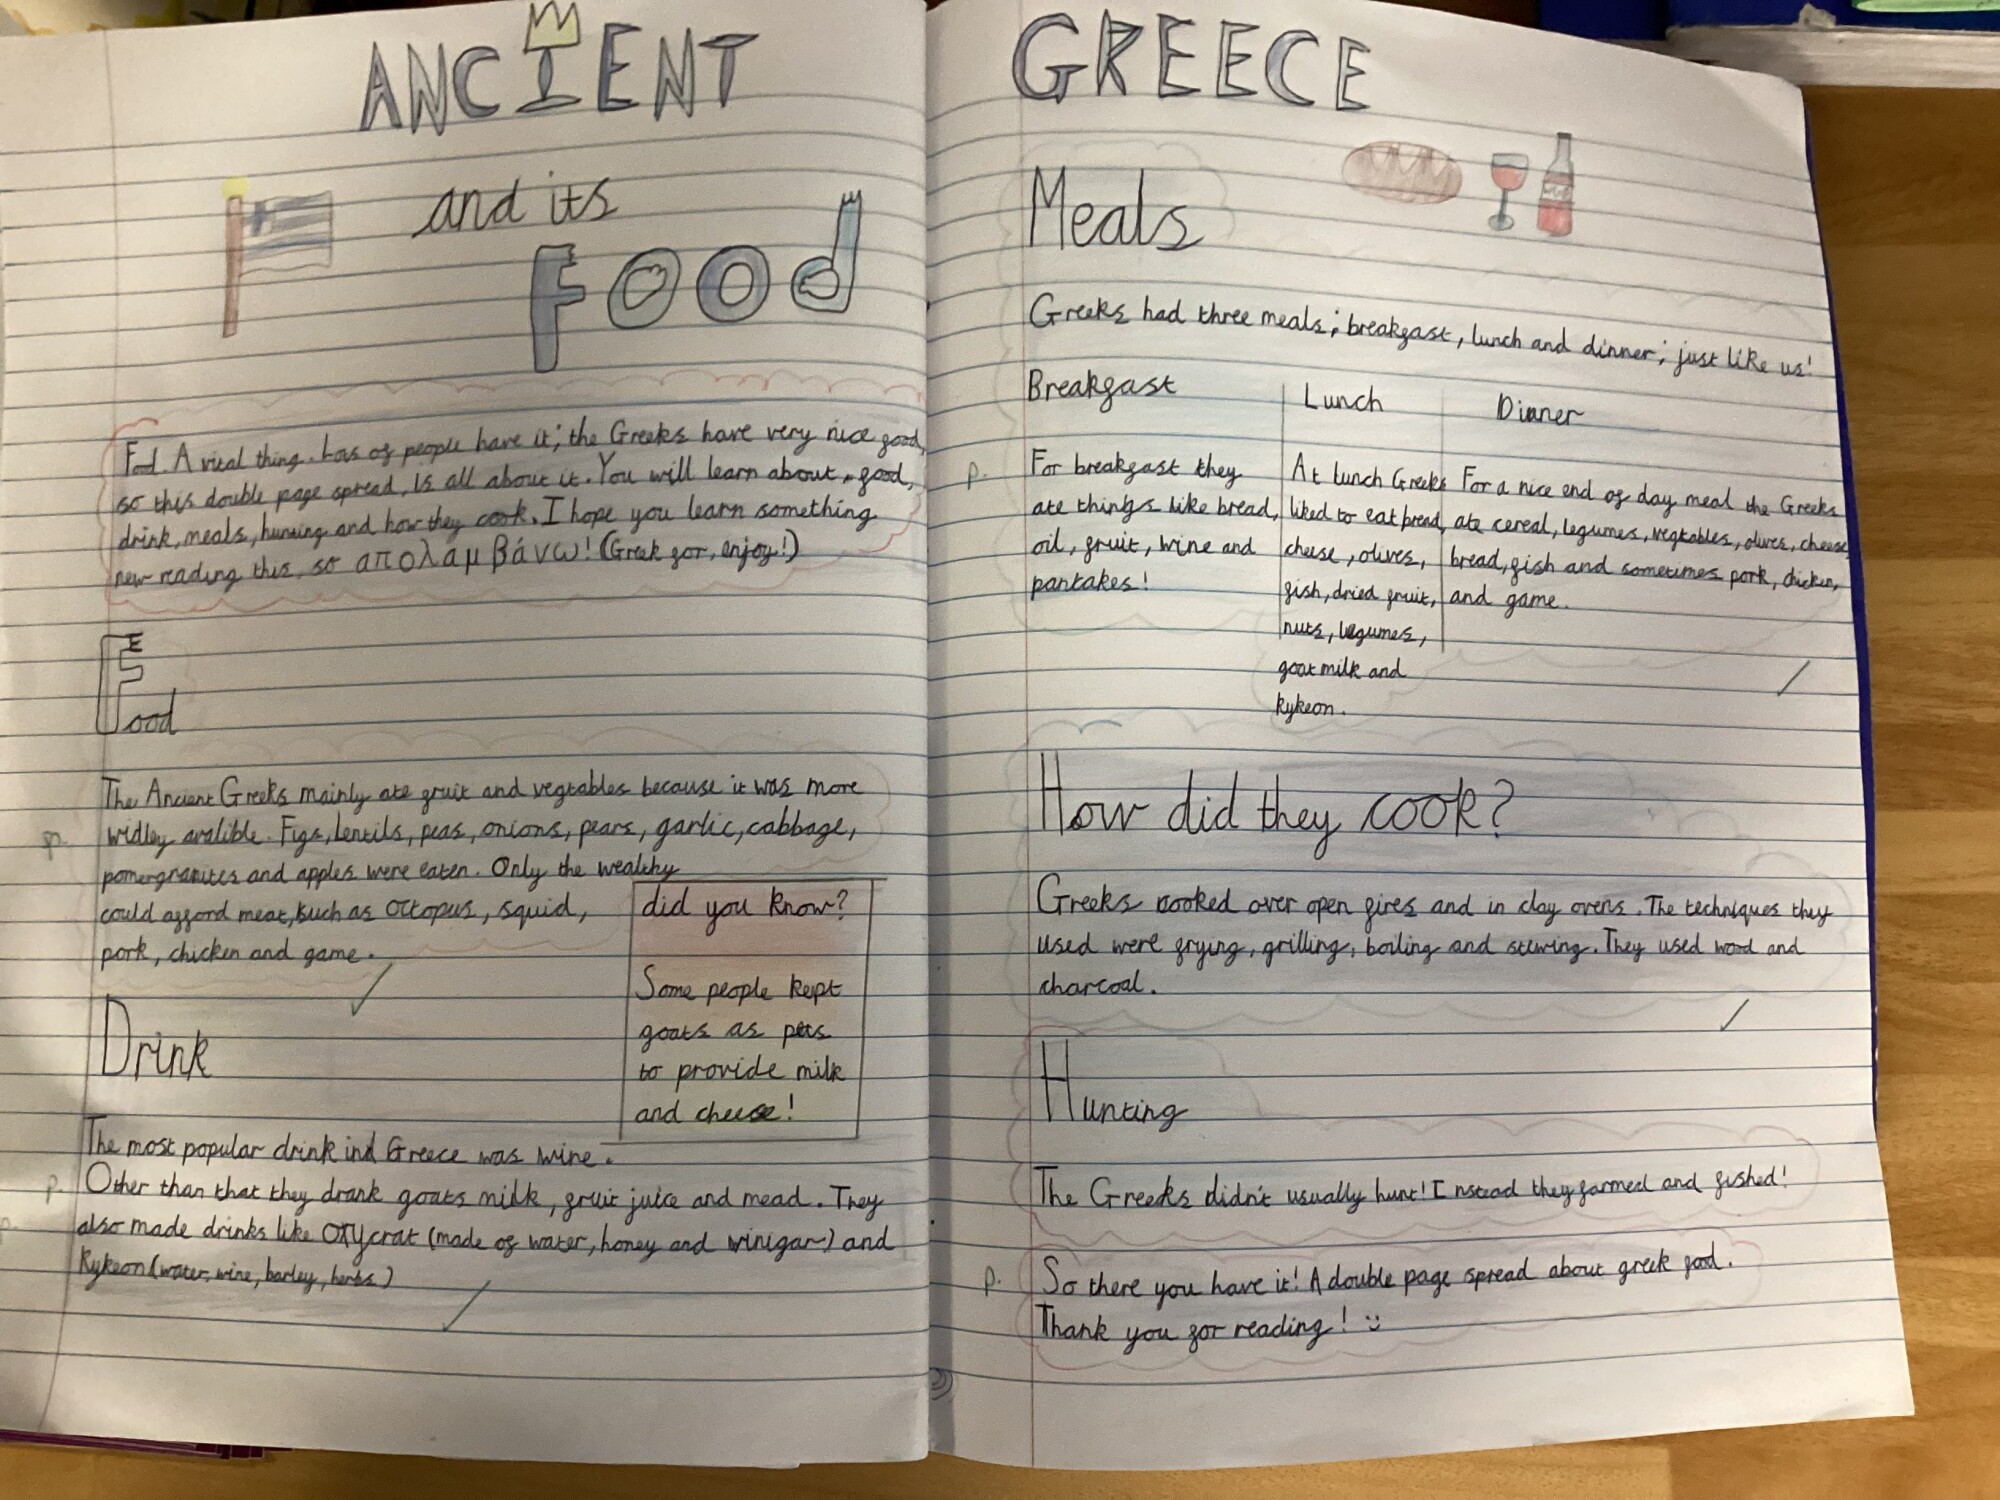 ANCIENT GREECE
and its
Food
Food. A vital thing. Lots of people have it; the Greeks have very nice food,
so this double page spread, is all about it. You will learn about food,
drink, meals, hunting and how they cook. I hope you learn something
new reading this, so απολαμβάνω! (Greek for, enjoy!)
Food
The Ancient Greeks mainly ate fruit and vegtables because it was more
p.
widley avalible. Figs, lentils, peas, onions, pears, garlic, cabbage,
pomergranites and apples were eaten. Only the wealthy
could afford meat, such as octopus, squid,
pork, chicken and game.
did you know?
Some people kept
goats as pets
to provide milk
and cheese!
Drink
The most popular drink in Greece was wine.
p.
Other than that they drank goats milk, fruit juice and mead. They
also made drinks like oxycrat (made of water, honey and vinigar) and
Kykeon (water, wine, barley, herbs)
Meals
Greeks had three meals; breakfast, lunch and dinner; just like us!
Breakfast
p.
For breakfast they
ate things like bread,
oil, fruit, wine and
pantakes!
Lunch
At lunch Greeks
liked to eat bread,
cheese, olives,
fish, dried fruit,
nuts, legumes,
goat milk and
kykeon.
Dinner
For a nice end of day meal the Greeks
ate cereal, legumes, vegtables, olives, cheese
bread, fish and sometimes pork, chicken,
and game.
How did they cook?
Greeks cooked over open fires and in clay ovens. The techniques they
used were frying, grilling, boiling and stewing. They used wood and
charcoal.
Hunting
The Greeks didn't usually hunt! Instead they farmed and fished!
p.
So there you have it! A double page spread about greek food.
Thank you for reading! :)